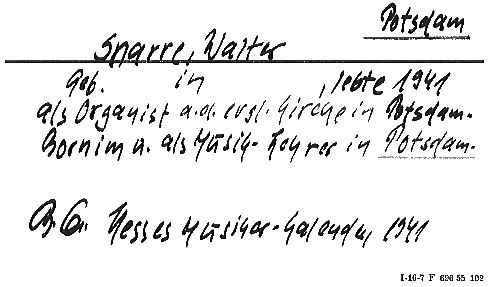 Potsdam
Sparre, Walter
Geb. in , lebte 1941
als Organist a.d. evgl. Kirche in Potsdam-
Bornim u. als Musik-Lehrer in Potsdam.
Hesses Musiker-Kalender 1941
I-16-7 F 696 55 102